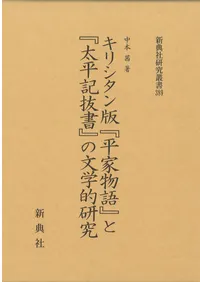 新典社研究叢書
中本 茜 著
キリシタン版『平家物語』と
『太平記抜書』の文学的研究
新典社